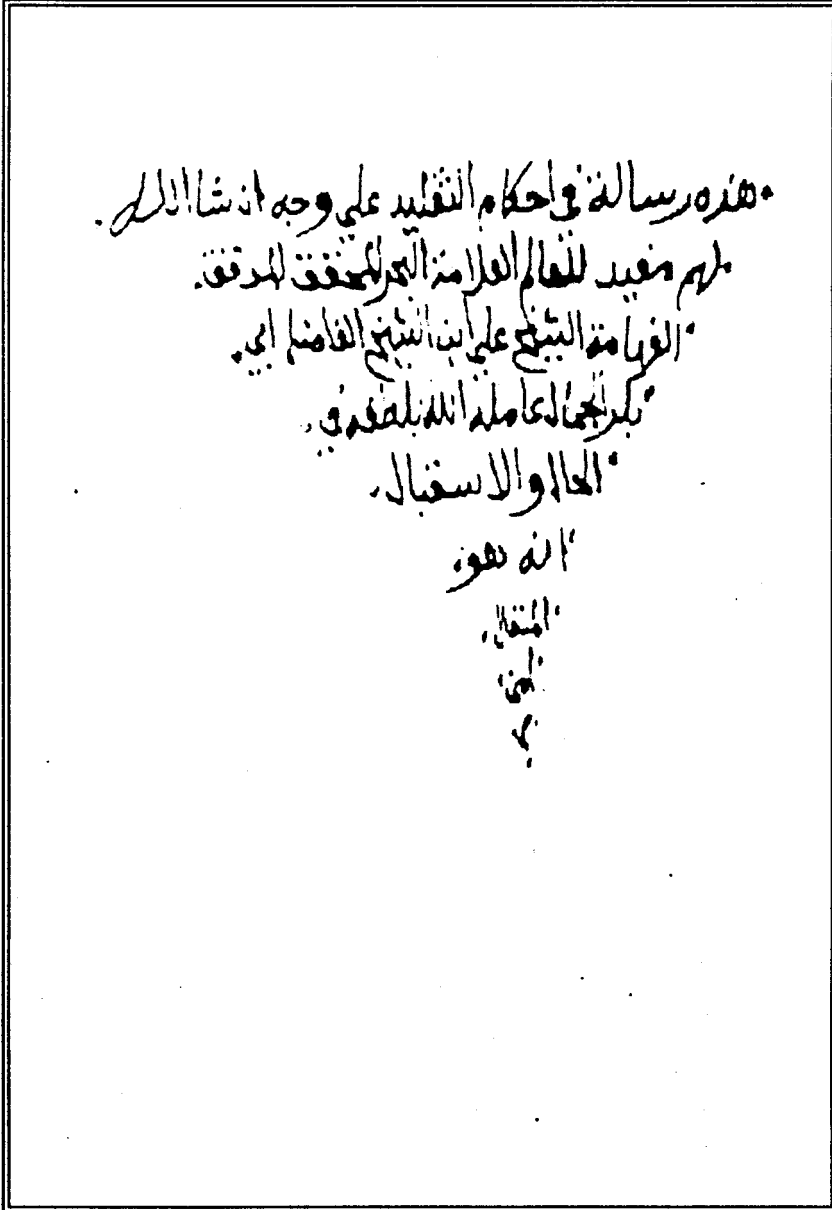 هذه رسالة في احكام التقليد علي وجه ان شا الله
مهم مفيد للعالم العلامة البحر المحقق المدقق
الفهامة الشيخ علي ابن الشيخ الفاضل ابي
بكر الجمال عامله الله بلطفه في
الحال والاستقبال
انه هو
المتعال
امين
م